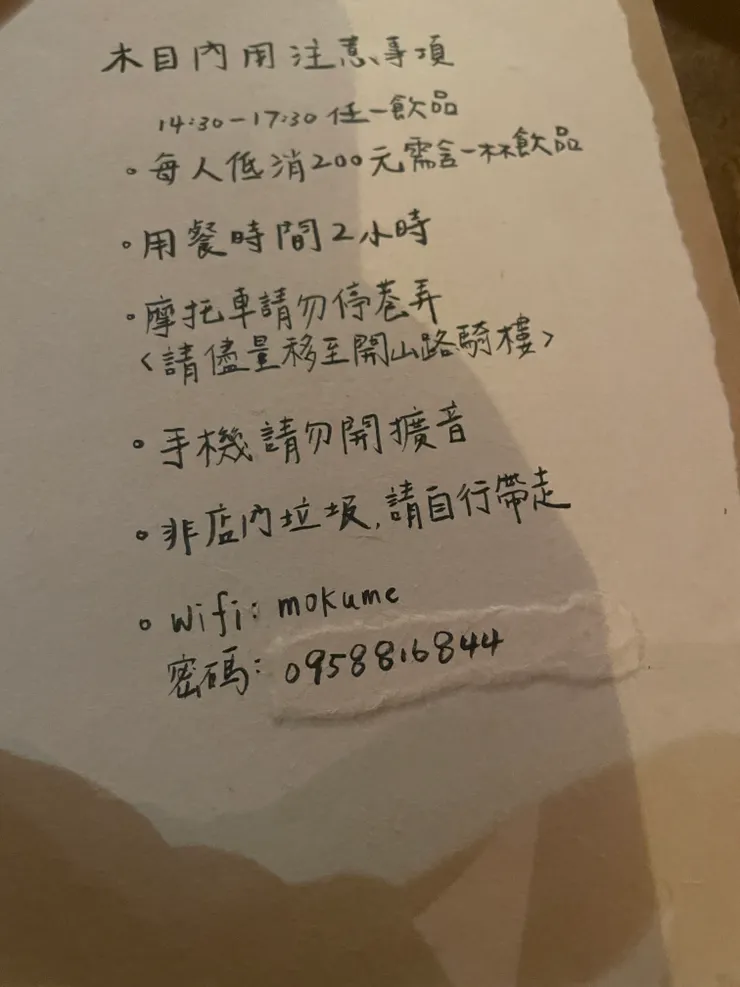 木目內用注意事項
14:30-17:30 任一飲品
。每人低消200元需含一杯飲品
。用餐時間2小時
。摩托車請勿停巷弄
<請儘量移至開山路騎樓>
。手機請勿開擴音
。非店內垃圾,請自行帶走
。Wifi: mokume
密碼: 0958816844